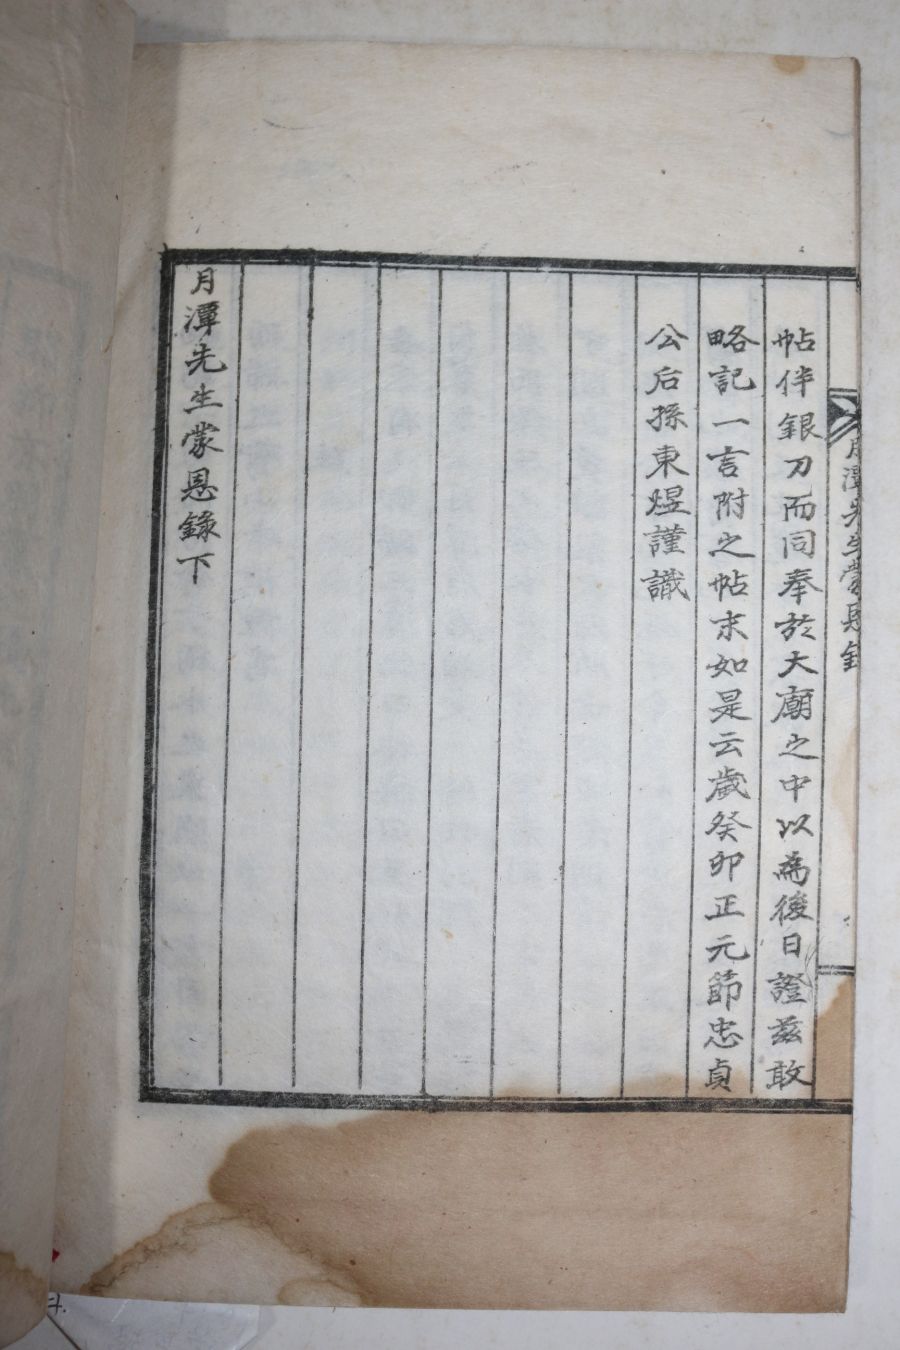 月潭先生蒙恩錄
帖伴銀刀而同奉於大廟之中以為後日證茲敢
略記一言附之帖末如是云歲癸卯正元節忠貞
公后孫東煜謹識
月潭先生蒙恩錄下